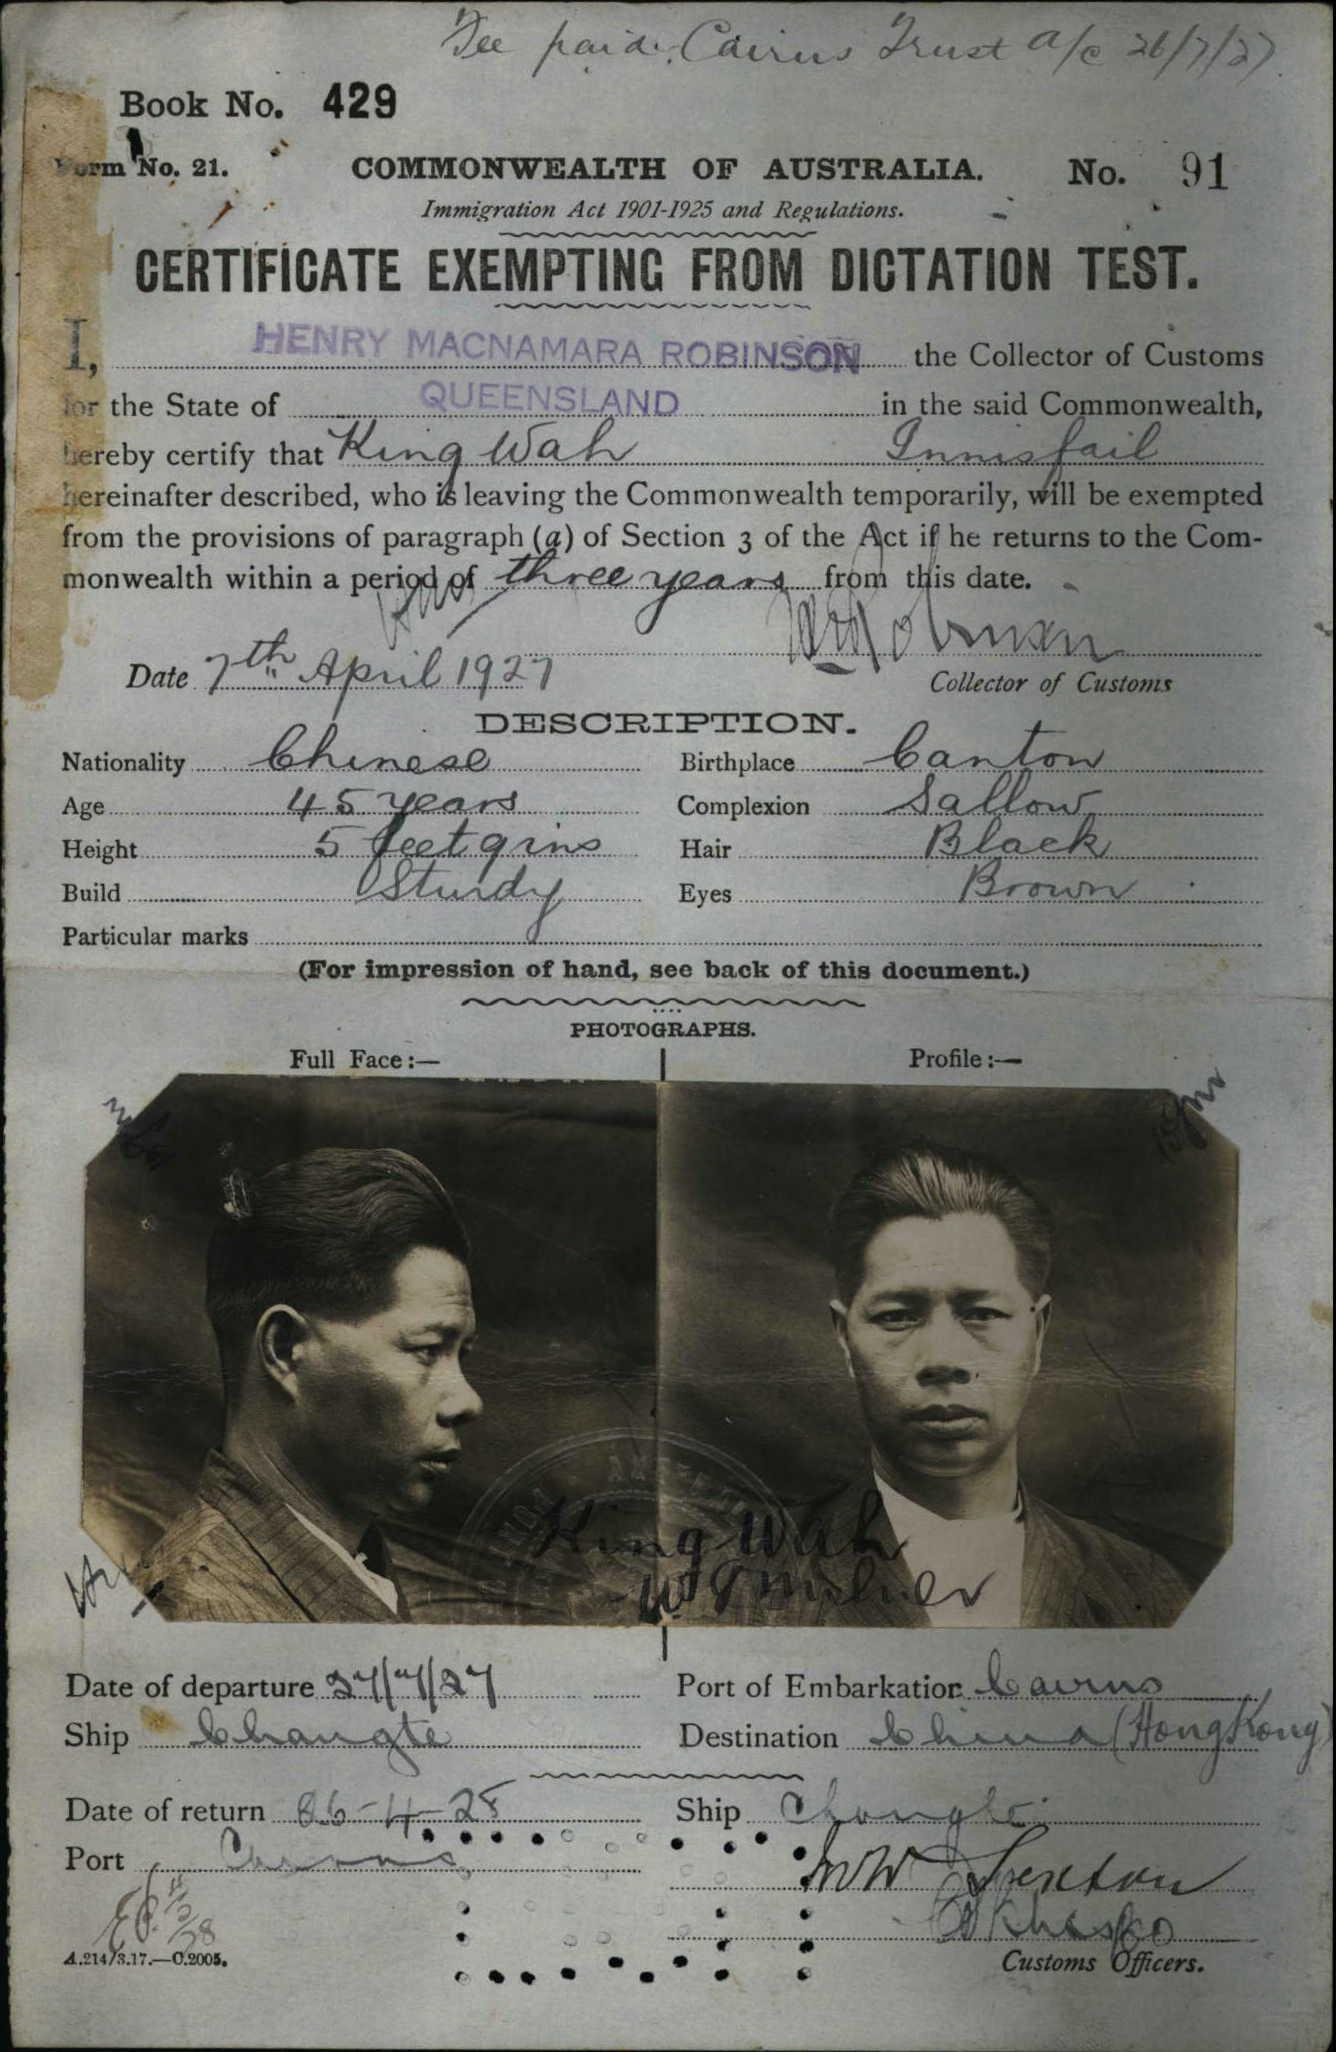 Fee paid. Cairns Trust a/c 26/7/27
Book No. 429
Form No. 21. COMMONWEALTH OF AUSTRALIA. No. 91
Immigration Act 1901-1925 and Regulations.
CERTIFICATE EXEMPTING FROM DICTATION TEST.
I, HENRY MACNAMARA ROBINSON the Collector of Customs
for the State of QUEENSLAND in the said Commonwealth,
hereby certify that King Wah Innisfail
hereinafter described, who is leaving the Commonwealth temporarily, will be exempted
from the provisions of paragraph (a) of Section 3 of the Act if he returns to the Com-
monwealth within a period of three years from this date.
Robinson
Date 7th April 1927 Collector of Customs
DESCRIPTION.
Nationality Chinese Birthplace Canton
Age 45 years Complexion Sallow
Height 5 feet 9 ins Hair Black
Build Sturdy Eyes Brown
Particular marks
(For impression of hand, see back of this document.)
PHOTOGRAPHS.
Full Face:— Profile:—
King Wah
Date of departure 27/7/27 Port of Embarkation Cairns
Ship Changte Destination China (Hong Kong)
Date of return 26-4-28 Ship Changte
Port Cairns
Customs Officers.
A.214/3.17.—C.2005.